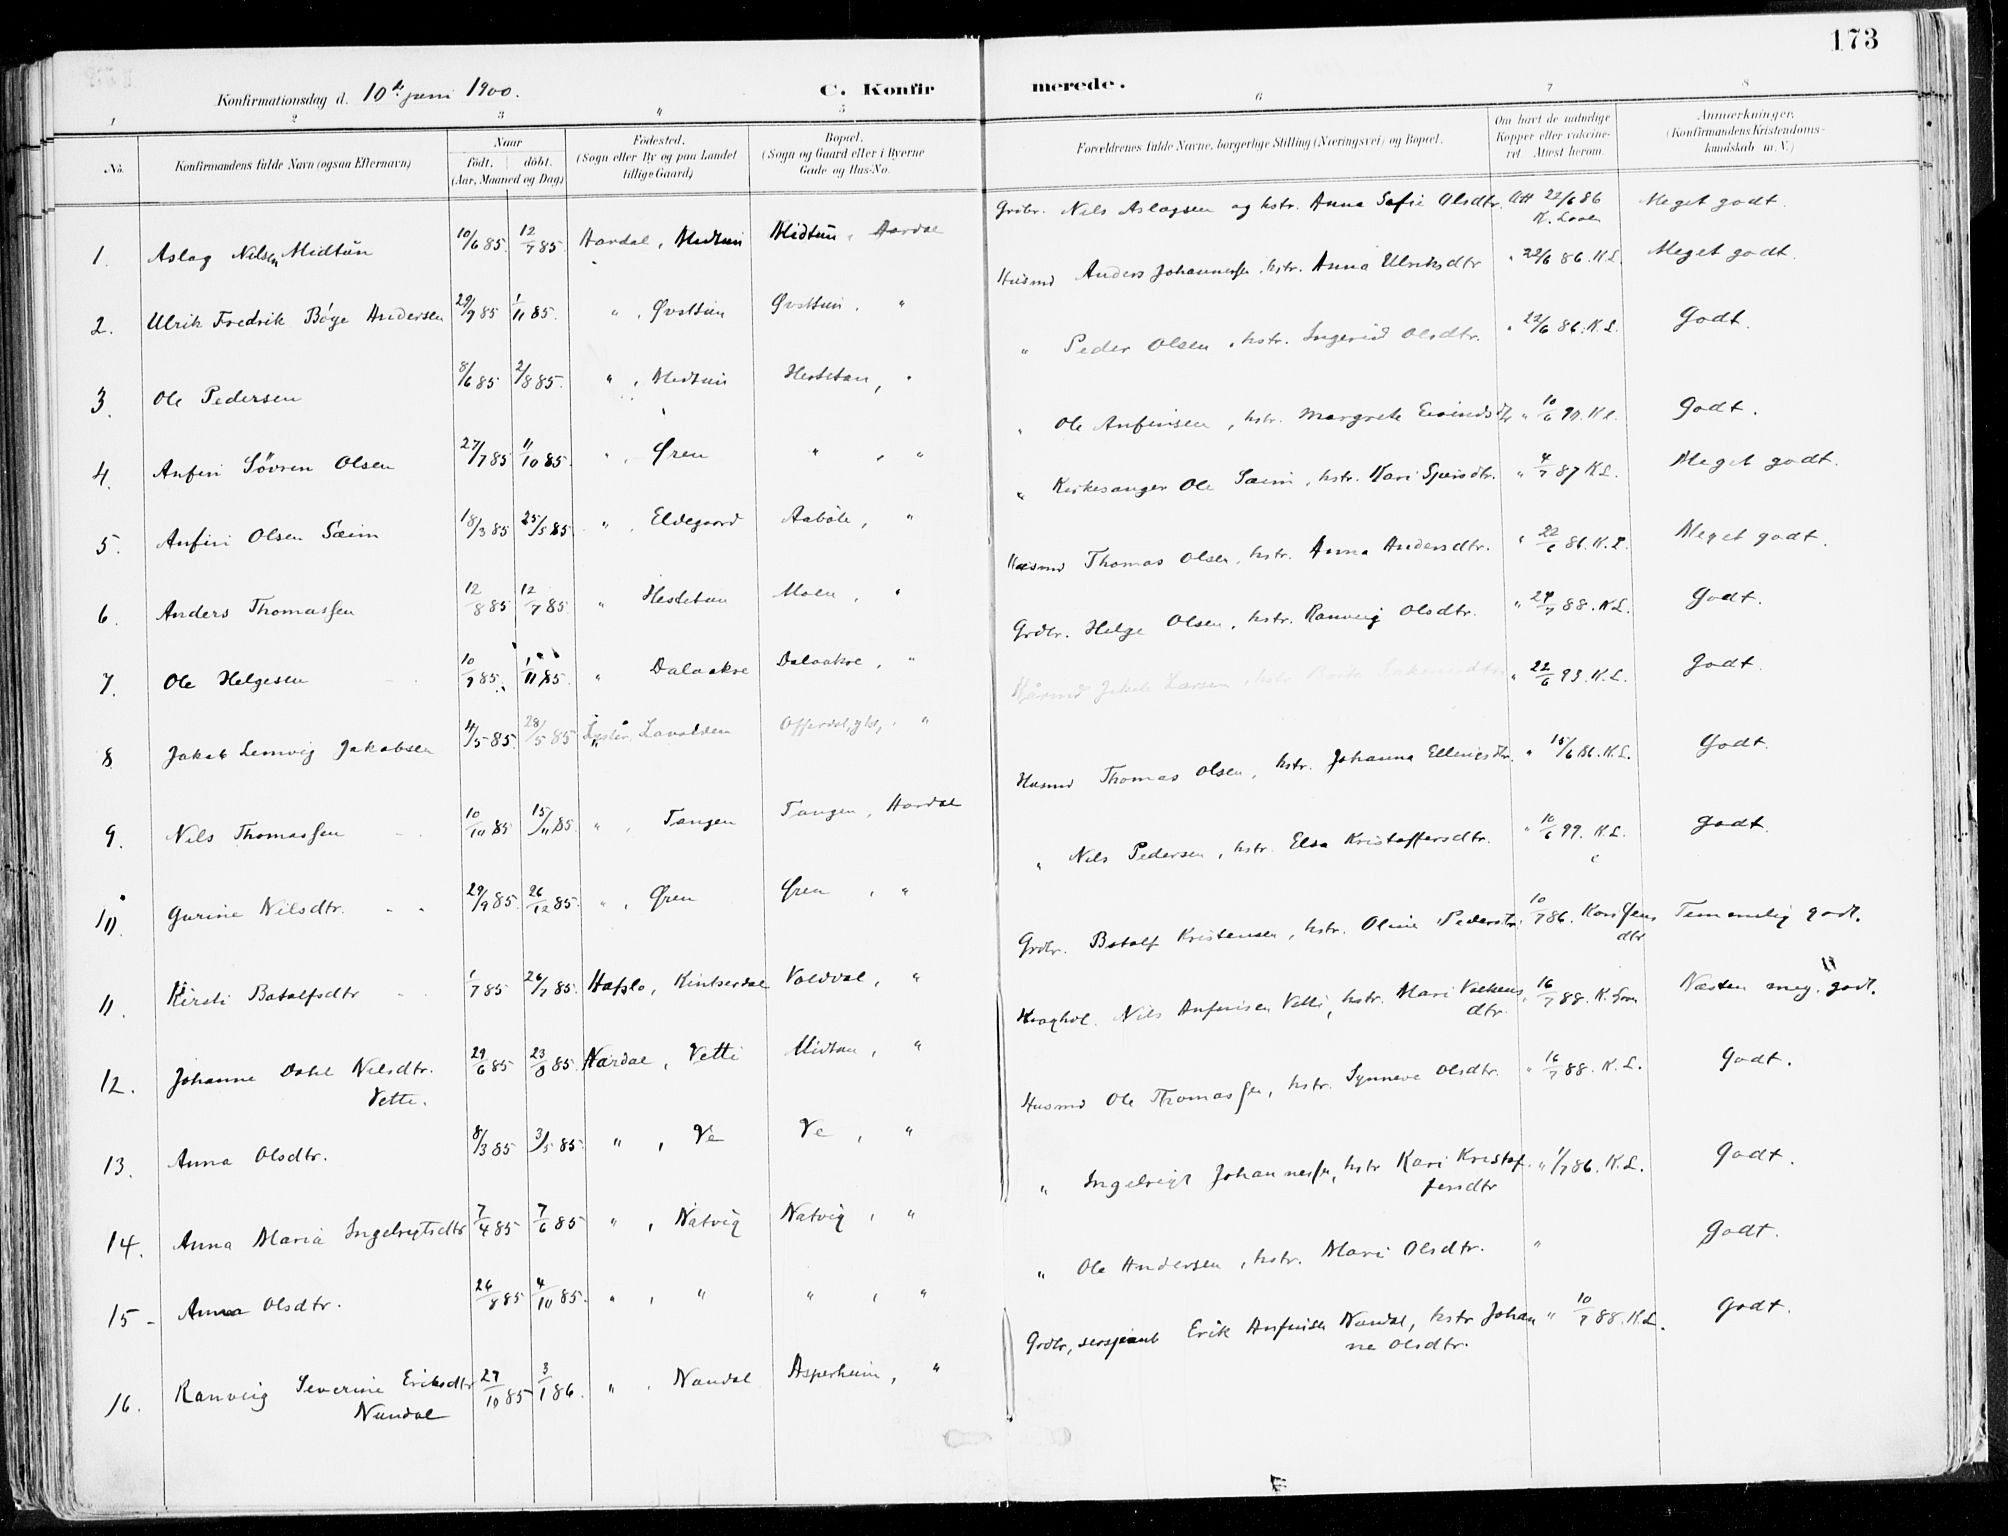 173
Konfirmationsdag d. 10de juni 1900.
C. Konfirmerede.
1 2 3 4 5 6 7 8
No.
Konfirmandens fulde Navn (ogsaa Efternavn)
Naar
født. døbt.
(Aar, Maaned og Dag)
Fødested.
(Sogn eller By og paa Landet
tillige Gaard)
Bopæl.
(Sogn og Gaard eller i Byerne
Gade og Hus-No.
Forældrenes fulde Navne, borgerlige Stilling (Næringsvei) og Bopæl.
Om havt de naturlige
Kopper eller vakcine-
ret. Attest herom.
Anmærkninger.
(Konfirmandens Kristendoms-
kundskab m. V.)
1. Aslag Nilsen Midtun 10/6 85. 12/7 85. Aardal, Midtun Midtun, Aardal Grdbr. Nils Aslagsen og hstr. Anna Sofie Olsdtr. Att 22/6 86 Meget godt.
2. Ulrik Fredrik Bøye Andersen 29/9 85 1/11 85. " , Øvstun Øvstun, " Husmd Anders Johannessen, hstr. Anna Ulriksdtr " 22/6 86. K.L. Meget godt.
3. Ole Pedersen 8/6 85 2/8 85. " , Midtun Hestetun, " " Peder Olsen, hstr. Ingerid Olsdtr. " 22/6 86. K.L. Godt.
4. Anfin Søvren Olsen 27/7 85 11/10 85. " , Øren " , " " Ole Anfinsen, hstr. Margrete Eivindsdtr " 10/6 90. K.L. Godt.
5. Anfin Olsen Sæim 18/3 85 25/5 85 " , Eldegaard Aabøle, " " Kirkesanger Ole Sæim, hstr. Kari Sjursdtr. " 4/7 87 K.L. Meget godt.
6. Anders Thomassen 12/8 85 12/7 85. " Hestetun Moen, " Husmd Thomas Olsen, hstr. Anna Andersdtr. " 22/6 86. K.L. Meget godt.
7. Ole Helgesen 10/9 85. 1/11 85. " Dalaakre Dalaakre, " Grdbr. Helge Olsen, hstr. Ranveig Olsdtr. " 24/7 88. K.L. Godt.
8 Jakob Lemvig Jakobsen 4/5 85 28/5 85 Offerdal, " Jakob Larsen, hstr. Brita " 22/6 93. K.L. Godt.
9. Nils Thomassen 10/10 85 15/11 85. " , Tangen Tangen, Aardal Husmd Thomas Olsen, hstr. Johanna Ellingsdtr. " 15/6 86. K.L. Godt.
10. Gurine Nilsdtr. 29/9 85. 26/12 85. " , Øren Øren , " " Nils Pedersen, hstr. Elsa Kristoffersdtr. " 10/6 99. K.L. Godt.
11. Kirsti Botolfsdtr 1/7 85 26/7 85. Hafslo, Kintserdal Voldval, " Grdbr. Botolf Kristensen, hstr. Oline Pedersdtr. 10/7 86. Temmelig godt.
12. Johanne Dahl Nilsdtr.
Vetti. 29/6 85 23/8 85. Aardal, Vetti Midtun, " Nils Anfinsen Vetti, hstr. Mari
dtr. 16/7 88. K. Næsten meg. godt.
13. Anna Olsdtr. 8/3 85 3/5 85. " , Ve Ve , " Husmd Ole Thomassen, hstr. Synneve Olsdtr. " 16/7 88. K.L. Godt.
14. Anna Maria Ingebrigtsdtr 7/4 85 7/6 85 " , Natvig Natvig, " " Ingebrigt Johannessen, hstr Kari Kristof-
fersdtr " 1/7 86. K.L. Godt.
15. Anna Olsdtr. 26/8 85 4/10 85. " , " " , " " Ole Andersen, hstr. Mari Olsdtr. " Godt.
16. Ranveig Severine Eriksdtr
Nundal 27/10 85 3/1 86. " , Nundal Asperheim, " Grdbr, sersjeant Erik Anfinsen Nundal, hstr Johan
ne Olsdtr. " 10/7 88. K.L. Godt.